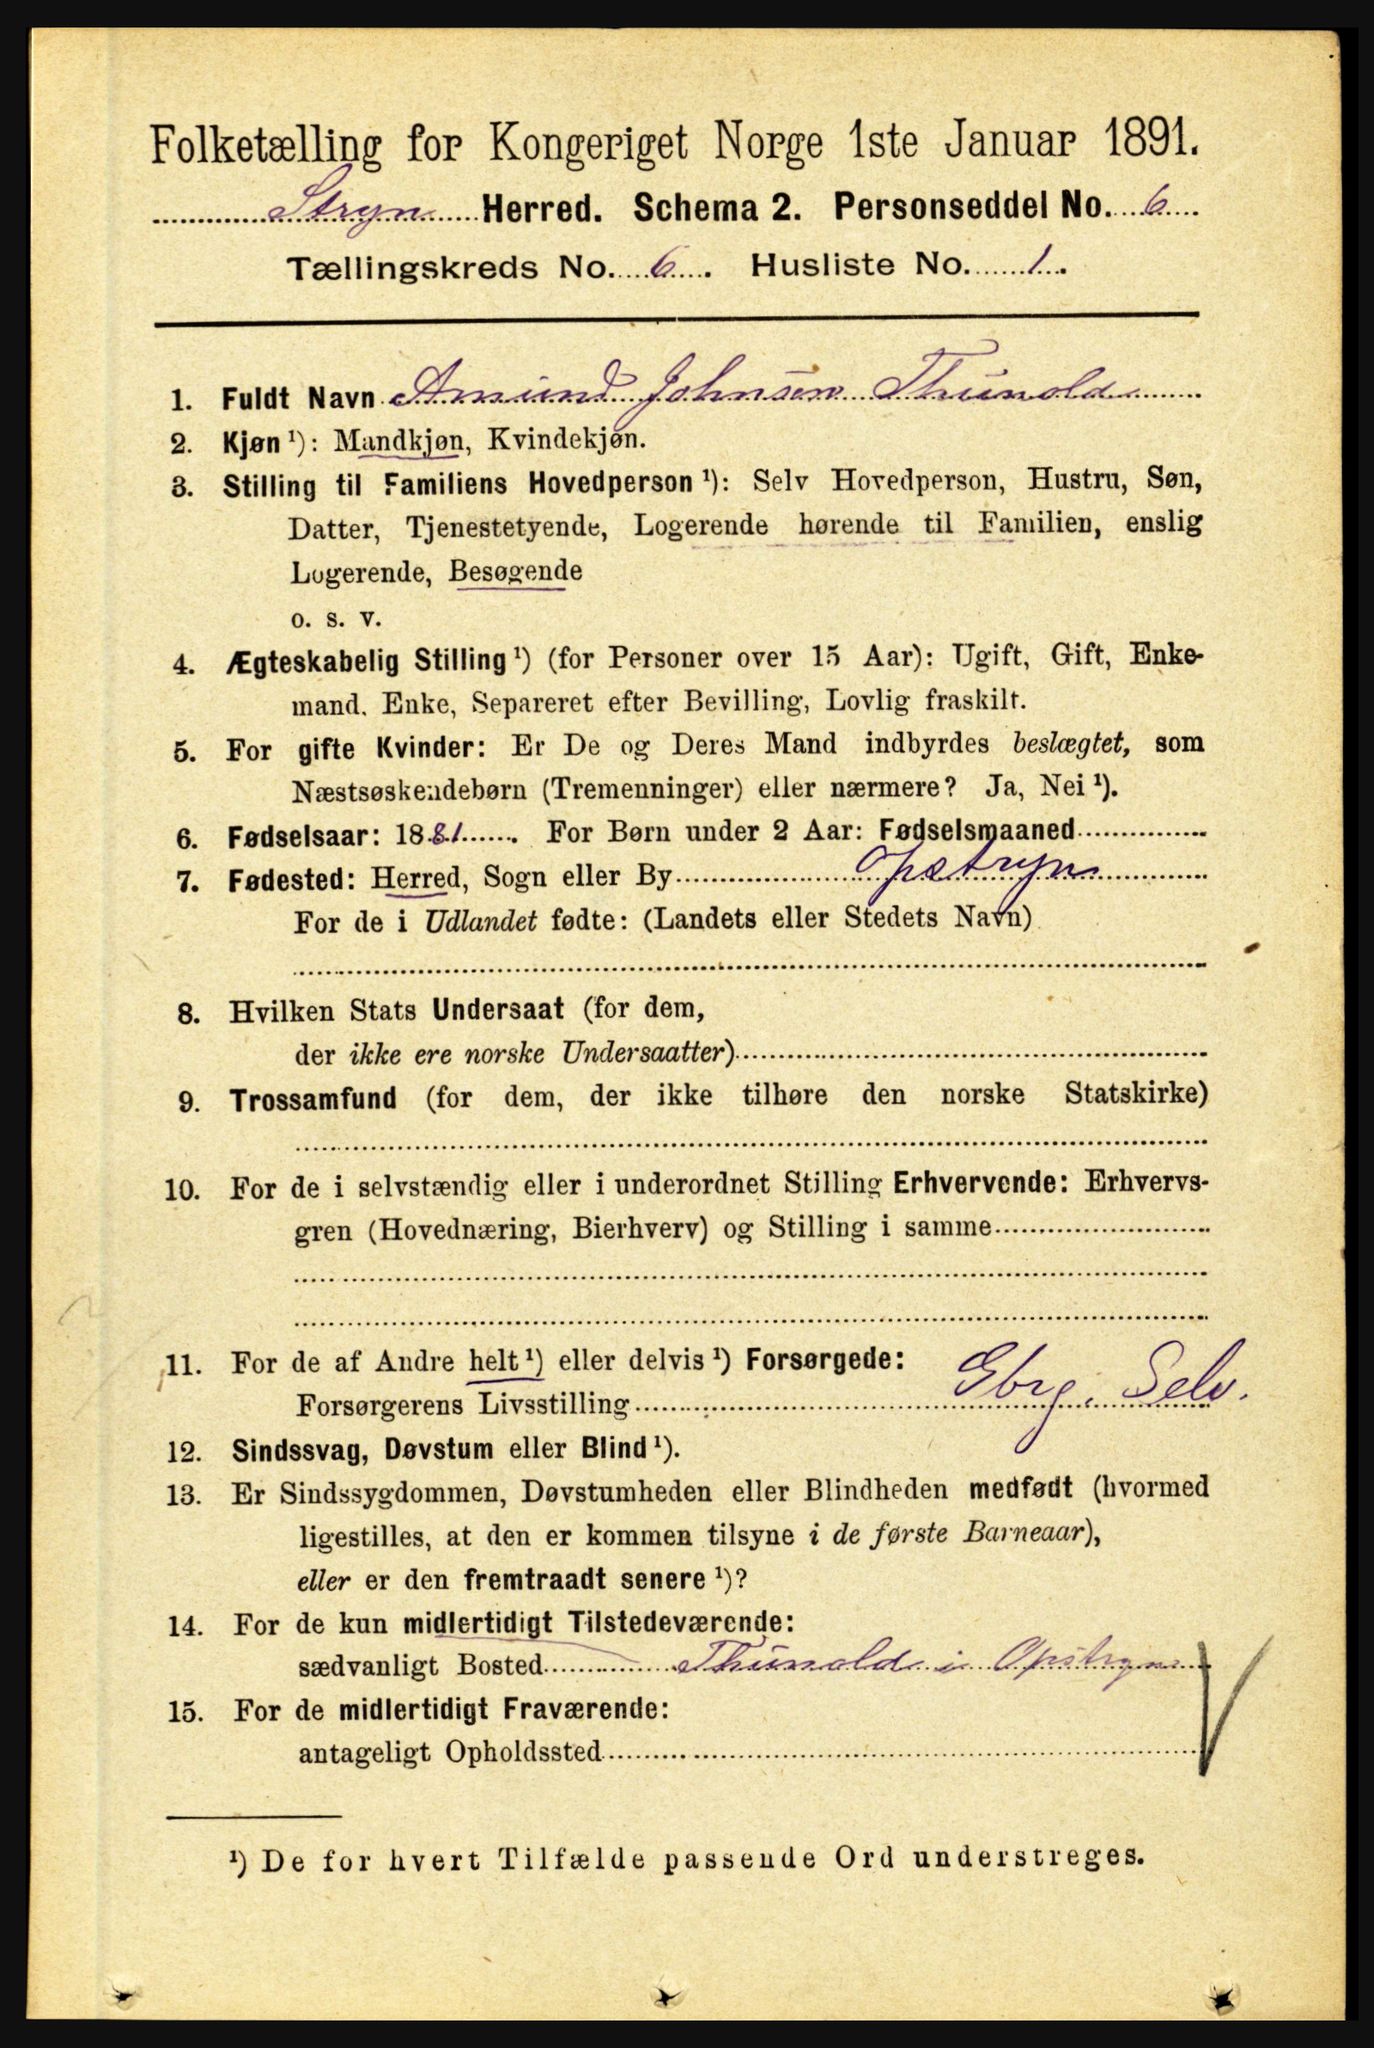 Folketælling for Kongeriget Norge 1ste Januar 1891.
Stryn Herred. Schema 2. Personseddel No. 6
Tællingskreds No. 6. Husliste No. 1.
1. Fuldt Navn Amund Johnsen Thunold
2. Kjøn ¹): Mandkjøn, Kvindekjøn.
3. Stilling til Familiens Hovedperson ¹): Selv Hovedperson, Hustru, Søn,
Datter, Tjenestetyende, Logerende hørende til Familien, enslig
Logerende, Besøgende
o. s. v.
4. Ægteskabelig Stilling ¹) (for Personer over 15 Aar): Ugift, Gift, Enke-
mand, Enke, Separeret efter Bevilling, Lovlig fraskilt.
5. For gifte Kvinder: Er De og Deres Mand indbyrdes beslægtet, som
Næstsøskendebørn (Tremenninger) eller nærmere? Ja, Nei ¹).
6. Fødselsaar: 1881. For Børn under 2 Aar: Fødselsmaaned
7. Fødested: Herred, Sogn eller By Opstryn
For de i Udlandet fødte: (Landets eller Stedets Navn)
8. Hvilken Stats Undersaat (for dem,
der ikke ere norske Undersaatter)
9. Trossamfund (for dem, der ikke tilhøre den norske Statskirke)
10. For de i selvstændig eller i underordnet Stilling Erhvervende: Erhvervs-
gren (Hovednæring, Bierhverv) og Stilling i samme
11. For de af Andre helt ¹) eller delvis ¹) Forsørgede:
Forsørgerens Livsstilling Gbrg. Selv.
12. Sindssvag, Døvstum eller Blind ¹).
13. Er Sindssygdommen, Døvstumheden eller Blindheden medfødt (hvormed
ligestilles, at den er kommen tilsyne i de første Barneaar),
eller er den fremtraadt senere ¹)?
14. For de kun midlertidigt Tilstedeværende:
sædvanligt Bosted Thunold i Opstryn
15. For de midlertidigt Fraværende:
antageligt Opholdssted
¹) De for hvert Tilfælde passende Ord understreges.